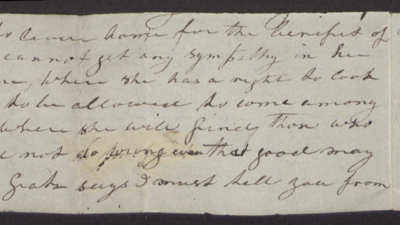 leave home for the benefit of
cannot get any sympathy in her
where she has a right to look
to be allowed to come among
where she will find those who
not do wrong even that good may
Gratz says I must tell you from